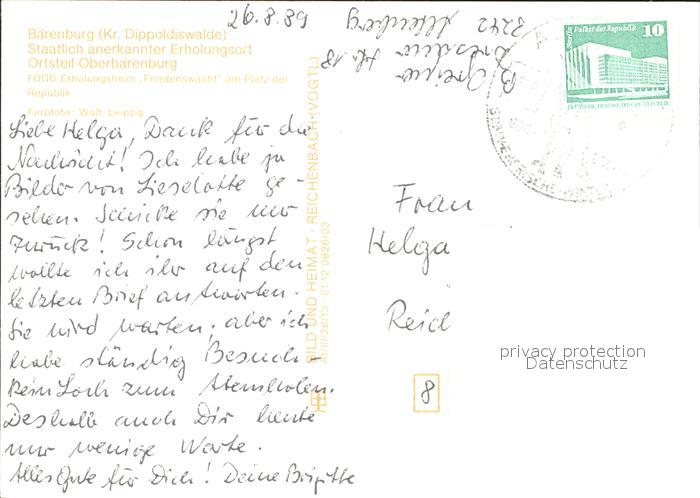 26.8.89
Bärenburg (Kr. Dippoldiswalde)
Staatlich anerkannter Erholungsort
Ortsteil Oberbärenburg
FDGB-Erholungsheim „Friedenswacht“ am Platz der
Republik
Farbfoto: Wolf, Leipzig
Liebe Helga, Dank für die
Nachricht! Ich habe ja
Bilder von Lieselotte ge-
sehen. Schicke sie nur
zurück! Schon längst
wollte ich ihr auf den
letzten Brief antworten.
Sie wird warten, aber ich
habe ständig Besuch,
Kein Loch zum Atemholen.
Deshalb auch Dir heute
nur wenige Worte.
Alles Gute für Dich! Deine Brigitte
BILD UND HEIMAT · REICHENBACH (VOGTL)
A1/III/26/13 · 01 12 0826/03
B.
Dresdner Str. 18
8242 Altenberg
Berlin Palast der Republik 10
DEUTSCHE DEMOKRATISCHE REPUBLIK
Frau
Helga
Reid
privacy protection
Datenschutz
8